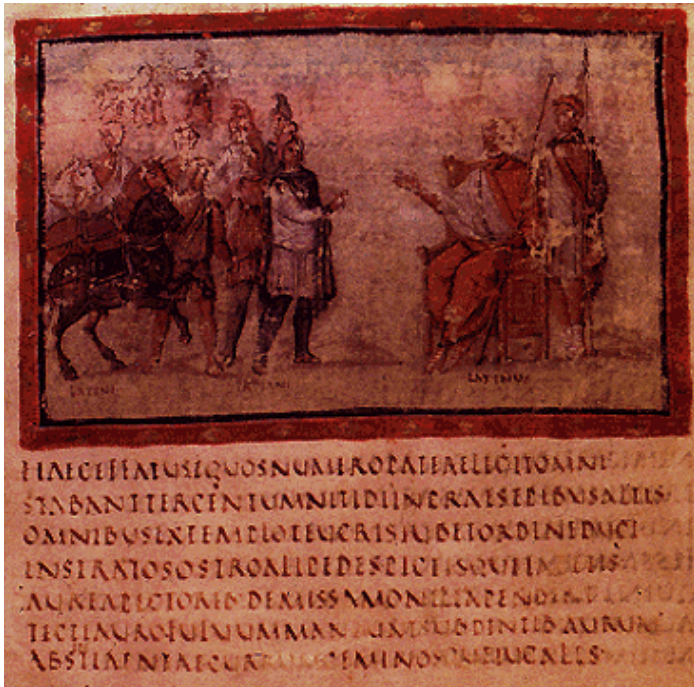 LATINI LATINUS
HAECEFFATUSEQUOSNUMEROPATERELIGITOMNI
STABANTTERCENTUMNITIDIINPRAESEPIBUSALTIS
OMNIBUSEXTEMPLOTEUCRISIUBETORDINEDUCI
INSTRATOSOSTROALIPEDESPICTISQUE
AUREAPECTORIB·DEMISSAMONILIAPENDENT
TECTIAUROFULUUMMANDUNTSUBDENTIB·AURUM
ABSENTIAENEAECURRUMGEMINOSQUEIUGALES